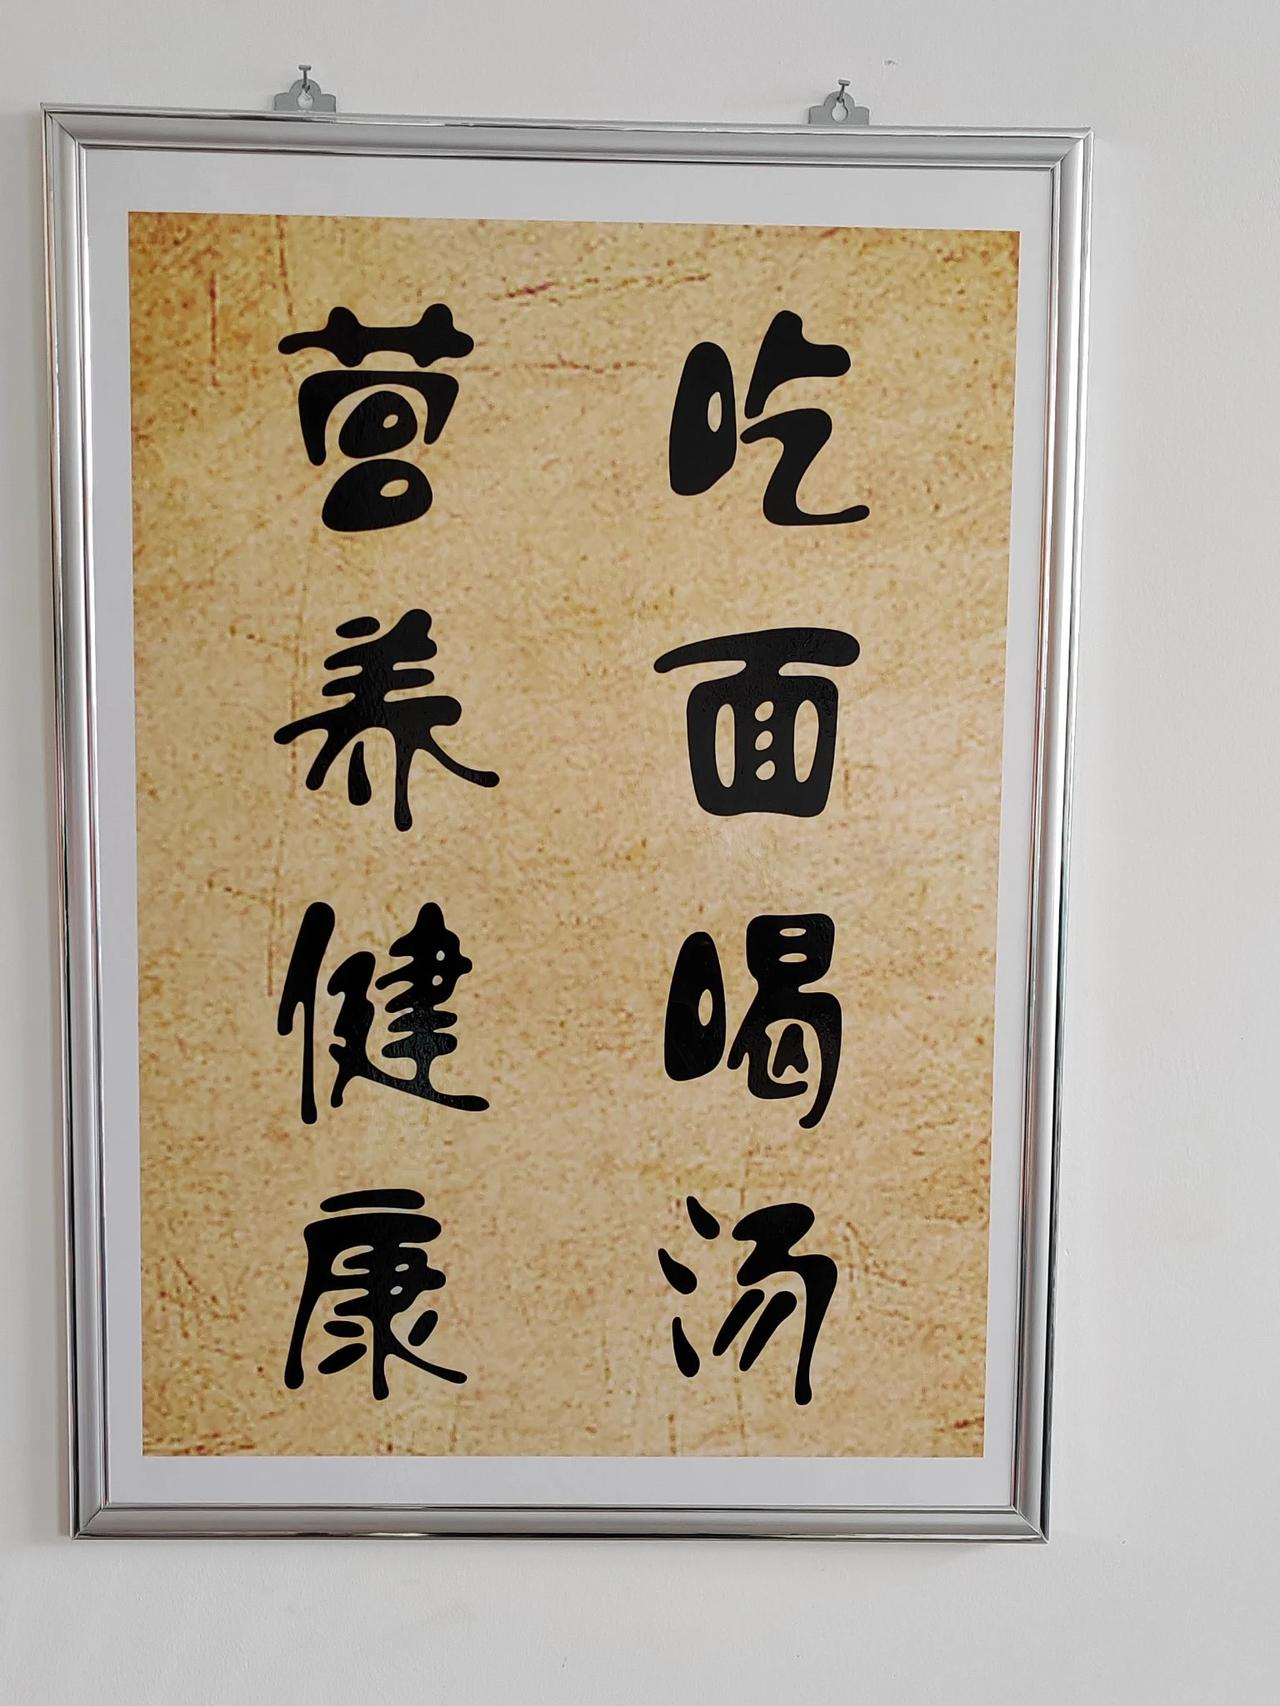 吃面喝汤
营养健康